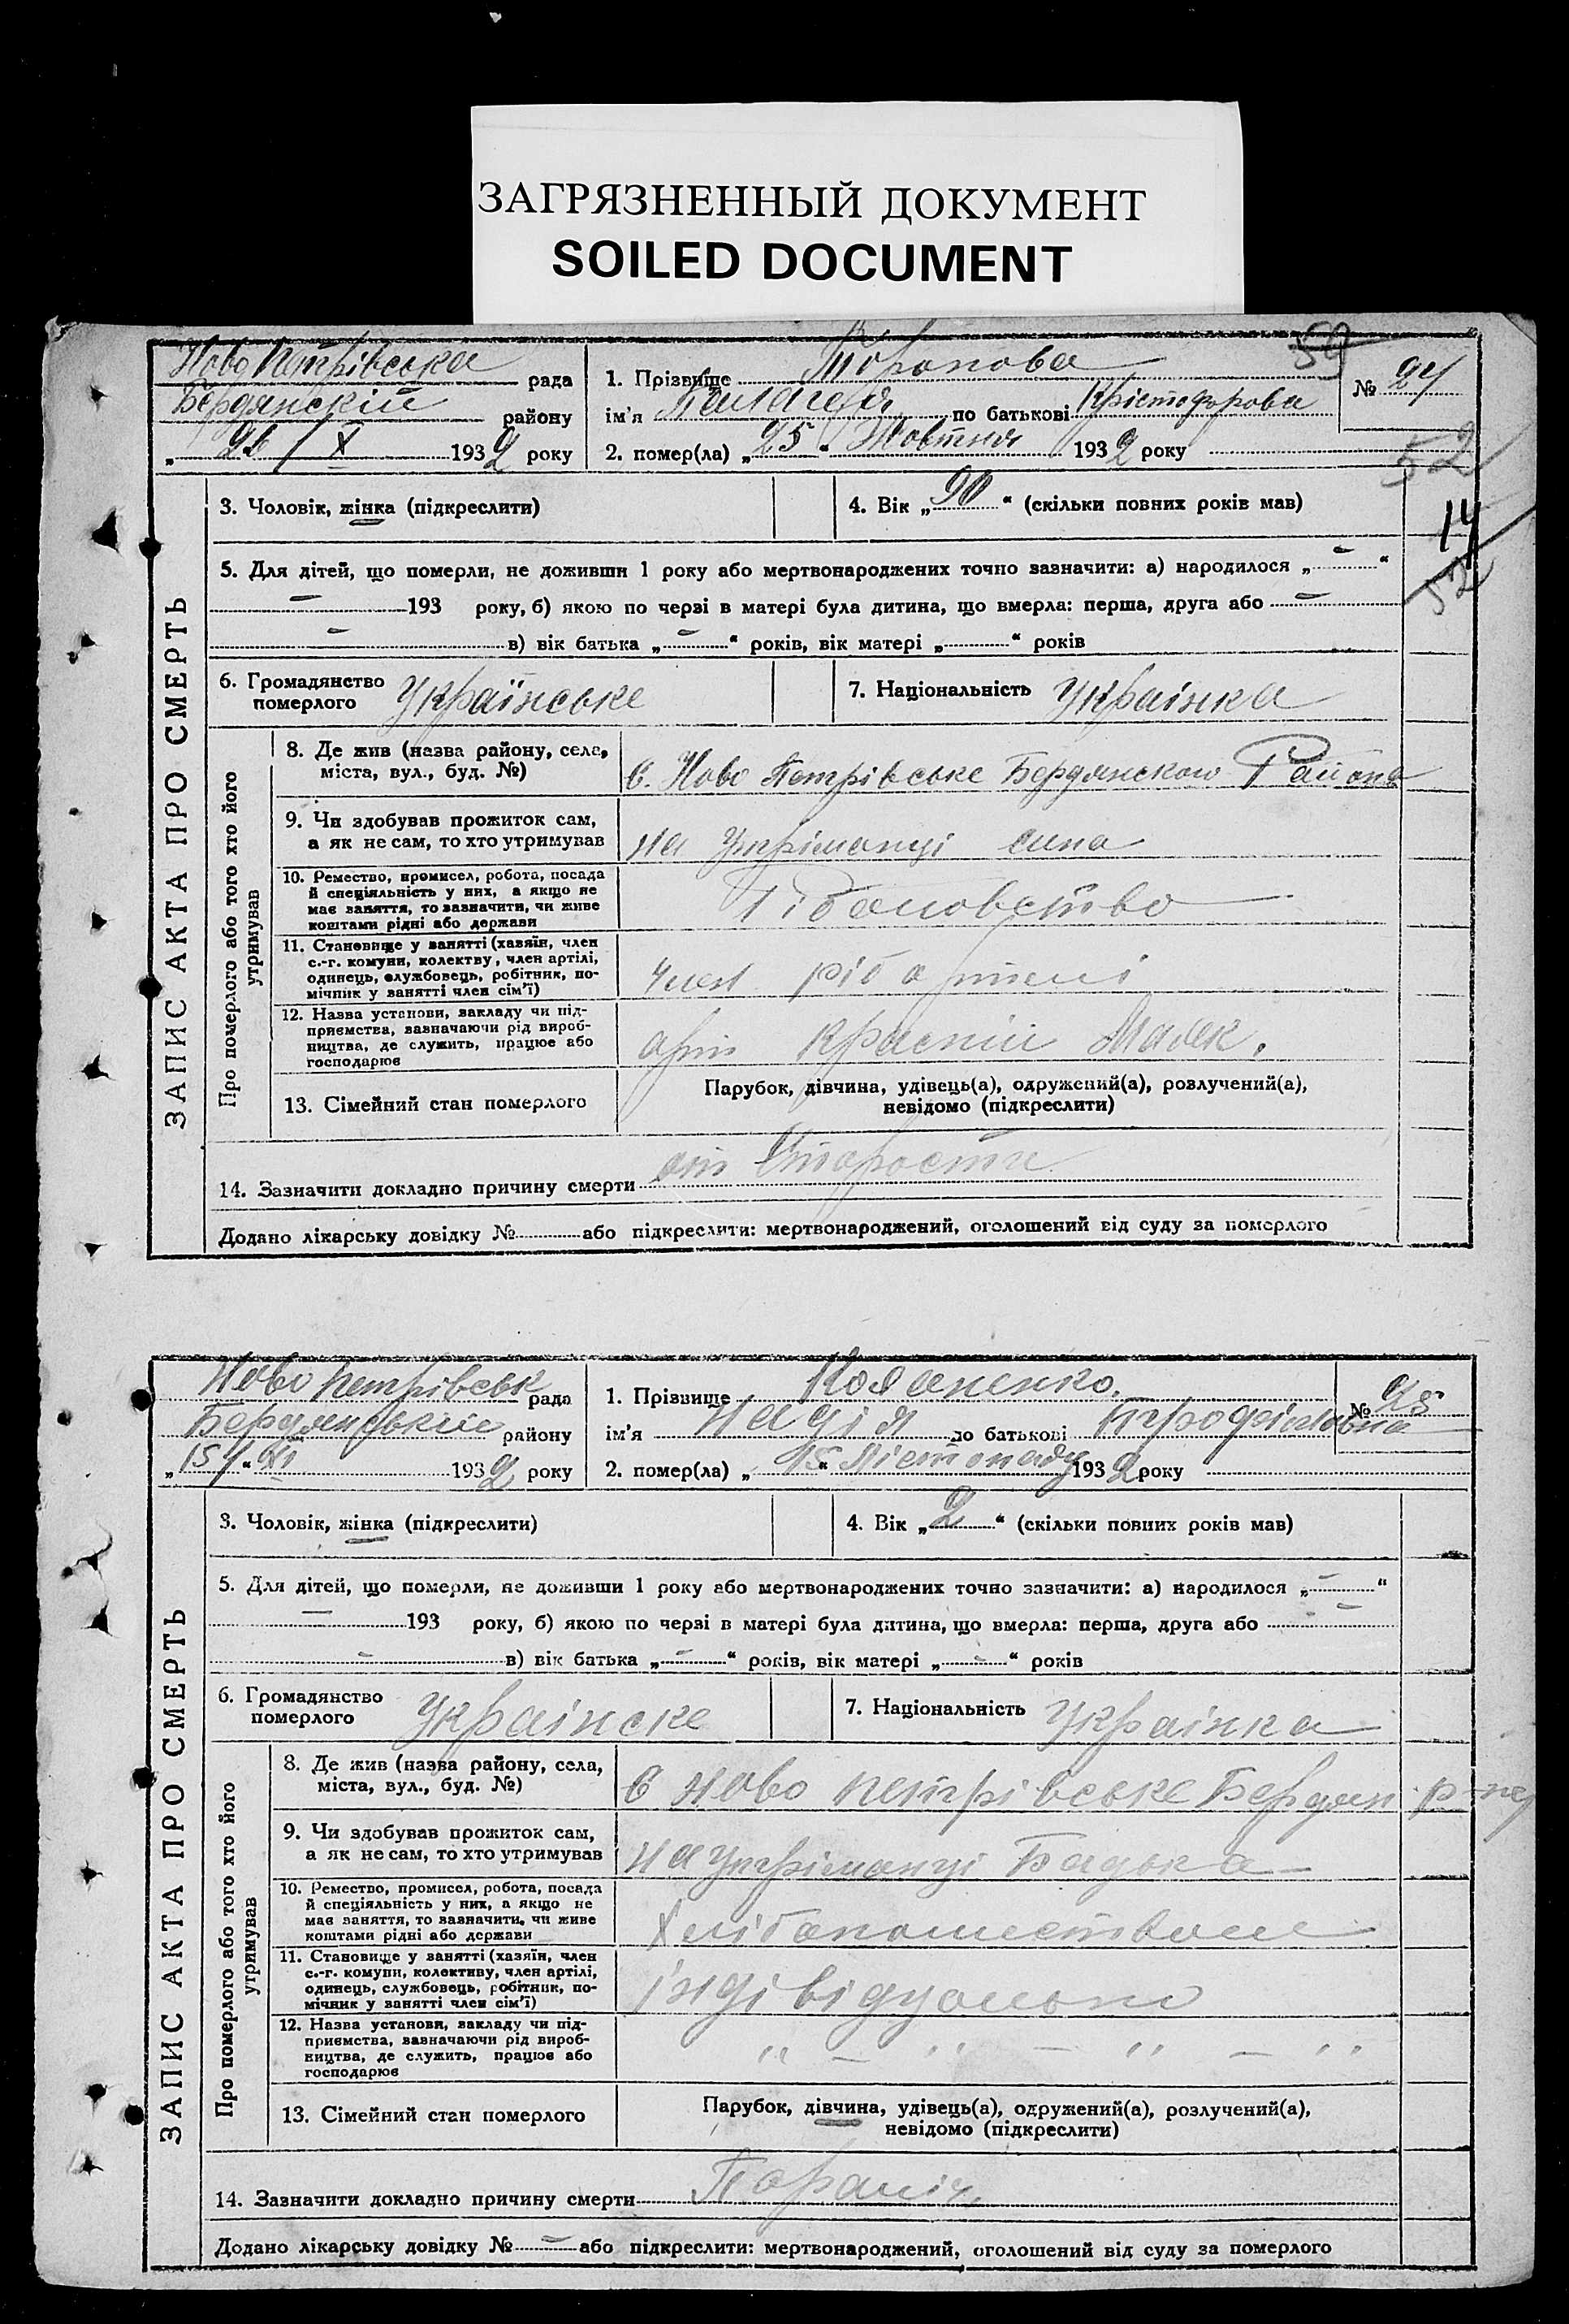 ЗАГРЯЗНЕННЫЙ ДОКУМЕНТ
SOILED DOCUMENT
59
Ново Петрівська рада
Бердянскій району
„ 26 / X 1932 року
1. Прізвище Торопова
ім'я по батькові Крістофорова
№ 24
2. помер(ла) „ 25 “ Жовтня 1932 року
52
3. Чоловік, жінка (підкреслити)
4. Вік „ 90 “ (скільки повних років мав)
14
52
5. Для дітей, що померли, не доживши 1 року або мертвонароджених точно зазначити: а) народилося „ - “
- 193 року, б) якою по черзі в матері була дитина, що вмерла: перша, друга або -
- в) вік батька „ - “ років, вік матері „ “ років
6. Громадянство померлого Українське
7. Національність Українка
ЗАПИС АКТА ПРО СМЕРТЬ
Про померлого або того хто його утримував
8. Де жив (назва району, села,
міста, вул., буд. №)
с. Ново Петрівське Бердянского Района
9. Чи здобував прожиток сам,
а як не сам, то хто утримував
на утріманці сина
10. Ремество, промисел, робота, посада
й спеціяльність у них, а якщо не
має заняття, то зазначити, чи живе
коштами рідні або держави
Рібаловство
11. Становище у занятті (хазяїн, член
с.-г. комуни, колективу, член артілі,
одинець, службовець, робітник, по-
мічник у занятті член сім'ї)
член ріб артелі
12. Назва установи, закладу чи під-
приємства, зазначаючи рід вироб-
ництва, де служить, працює або
господарює
арт Красний Маяк.
13. Сімейний стан померлого
Парубок, дівчина, удівець(а), одружений(а), розлучений(а),
невідомо (підкреслити)
14. Зазначити докладно причину смерти от Старости
Додано лікарську довідку № або підкреслити: мертвонароджений, оголошений від суду за померлого
Ново Петрівськ рада
Бердянський району
„ 15 “ XI 1932 року
1. Прізвище
ім'я Надія по батькові
№ 25
2. помер(ла) „ 15 “ Лістопаду 1932 року
3. Чоловік, жінка (підкреслити)
4. Вік „ 2 “ (скільки повних років мав)
5. Для дітей, що померли, не доживши 1 року або мертвонароджених точно зазначити: а) народилося „ - “
- 193 року, б) якою по черзі в матері була дитина, що вмерла: перша, друга або -
- в) вік батька „ - “ років, вік матері „ - “ років
6. Громадянство померлого Українске
7. Національність Українка
ЗАПИС АКТА ПРО СМЕРТЬ
Про померлого або того хто його утримував
8. Де жив (назва району, села,
міста, вул., буд. №)
с Ново Петрівське Бердян р-ну
9. Чи здобував прожиток сам,
а як не сам, то хто утримував
на утріманці Бадька
10. Ремество, промисел, робота, посада
й спеціяльність у них, а якщо не
має заняття, то зазначити, чи живе
коштами рідні або держави
11. Становище у занятті (хазяїн, член
с.-г. комуни, колективу, член артілі,
одинець, службовець, робітник, по-
мічник у занятті член сім'ї)
індівідуально
12. Назва установи, закладу чи під-
приємства, зазначаючи рід вироб-
ництва, де служить, працює або
господарює
„ — „ — „ — „
13. Сімейний стан померлого
Парубок, дівчина, удівець(а), одружений(а), розлучений(а),
невідомо (підкреслити)
14. Зазначити докладно причину смерти
Додано лікарську довідку № - або підкреслити: мертвонароджений, оголошений від суду за померлого